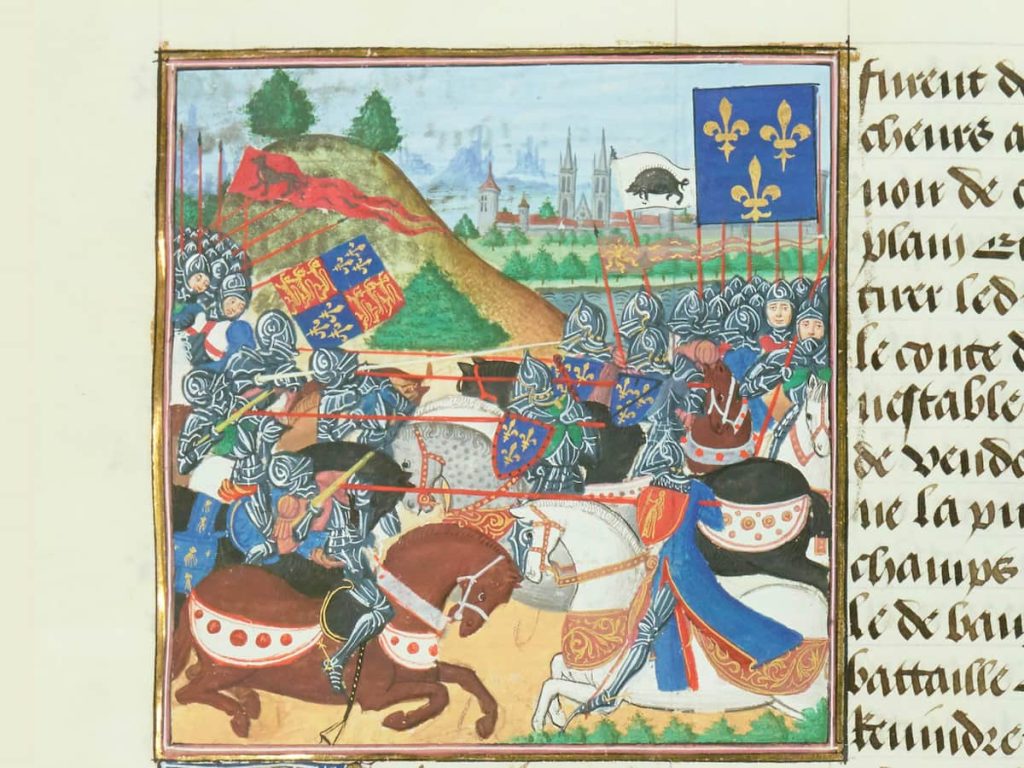 furent de
cheurs a
noir de c
plain
tirer led
le conte d
nestable
de vendo
ne la pu
champs
le de bau
bataille